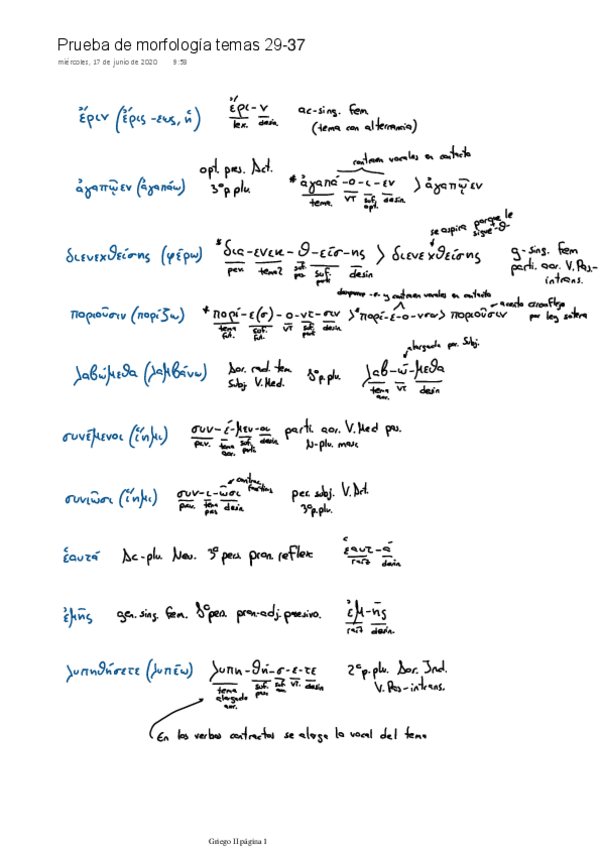 Prueba de morfología temas 29-37
miércoles, 17 de junio de 2020 9:59
ἔριν (ἔρις -εως, ἡ) ἔρι-ν ac-sing. fem
lex. desin. (tema con alternancia)
contraen vocales en contacto
ἀγαπῷεν (ἀγαπάω) opt. pres. Act. *ἀγαπά-ο-ι-εν > ἀγαπῷεν
3ª p. plu. tema. VT suf. opt. desin.
se aspira porque le sigue -θ-
διενεχθείσης (φέρω) *δια-ενεκ-θ-είσ-ης > διενεχθείσης g-sing. fem
prev. tema2 suf. suf. part. desin parti. aor. V. Pas-
intrans.
desaparece -σ- y contraen vocales en contacto
acento circunflejo por ley sotera
ποριοῦσιν (πορίζω) *πορί-ε(σ)-ο-ντ-σιν > *πορί-ε-ο-νσιν > ποριοῦσιν
tema fut. suf. fut. VT suf. part. desin
alargada por Subj.
λαβώμεθα (λαμβάνω) Aor. rad. tem 3ª p. plu. λαβ-ώ-μεθα
Subj V. Med. tema aor. VT desin
συνέμενοι (ἵημι) συν-έ-μεν-οι parti. aor. V. Med pas.
prev. tema aor. suf. part. desin N-plu. masc
contrac.
συνιῶσι (ἵημι) συν-ι-ῶσι pres. subj. V. Act.
prev. tema pres desin. 3ª p. plu.
ἑαυτά Ac-plu. Neu. 3ª pers. pron. reflex ἑαυτ-ά
raíz desin
ἐμῆς gen. sing. fem. pers. pron-adj. posesivo. ἐμ-ῆς
raíz desin.
λυπηθήσετε (λυπέω) λυπη-θή-σ-ε-τε 2ª p. plu. Aor. Ind.
tema alargado aor. suf. suf. VT. desin V. Pas-intrans.
En los verbos contractos se alarga la vocal del tema
Griego II página 1